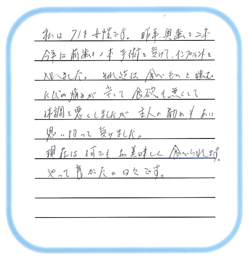 私は71才女性です。昨年奥歯を二本
今年は前歯を1本手術を受けてインプラントを
入れました。それ迄は食べものを噛む
たびの痛みが辛くて食欲も無くして
体調を悪くしましたが主人の勧めもあり
思い切って受けました。
現在は何でも美味しく食べられます。
やって良かったの日々です。